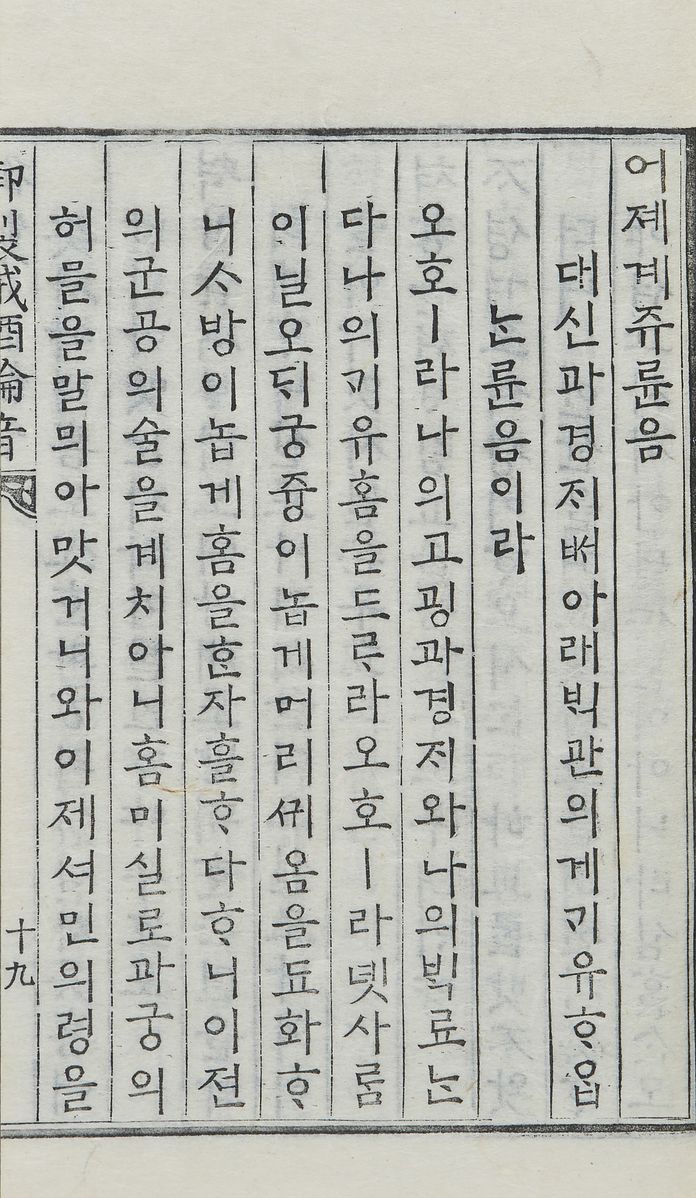 어졔계쥬륜음
대신과경ᄌᆡᄡᅥ아래ᄇᆡᆨ관의게ᄀᆡ유ᄒᆞ옵
ᄂᆞᆫ륜음이라
오호ㅣ라나의고굉과경ᄌᆡ와나의ᄇᆡᆨ료ᄂᆞᆫ
다나의ᄀᆡ유홈을드ᄅᆞ라오호ㅣ라녯사ᄅᆞᆷ
이닐오ᄃᆡ궁즁이놉게머리ᄭᅵ옴을됴화ᄒᆞ
니ᄉᆞ방이놉게홈을ᄒᆞᆫ자흘ᄒᆞ다ᄒᆞ니이젼
의군공의술을계치아니홈미실로과궁의
허믈을말ᄆᆡ아맛거니와이제셔민의령을
戒酒綸音
十九